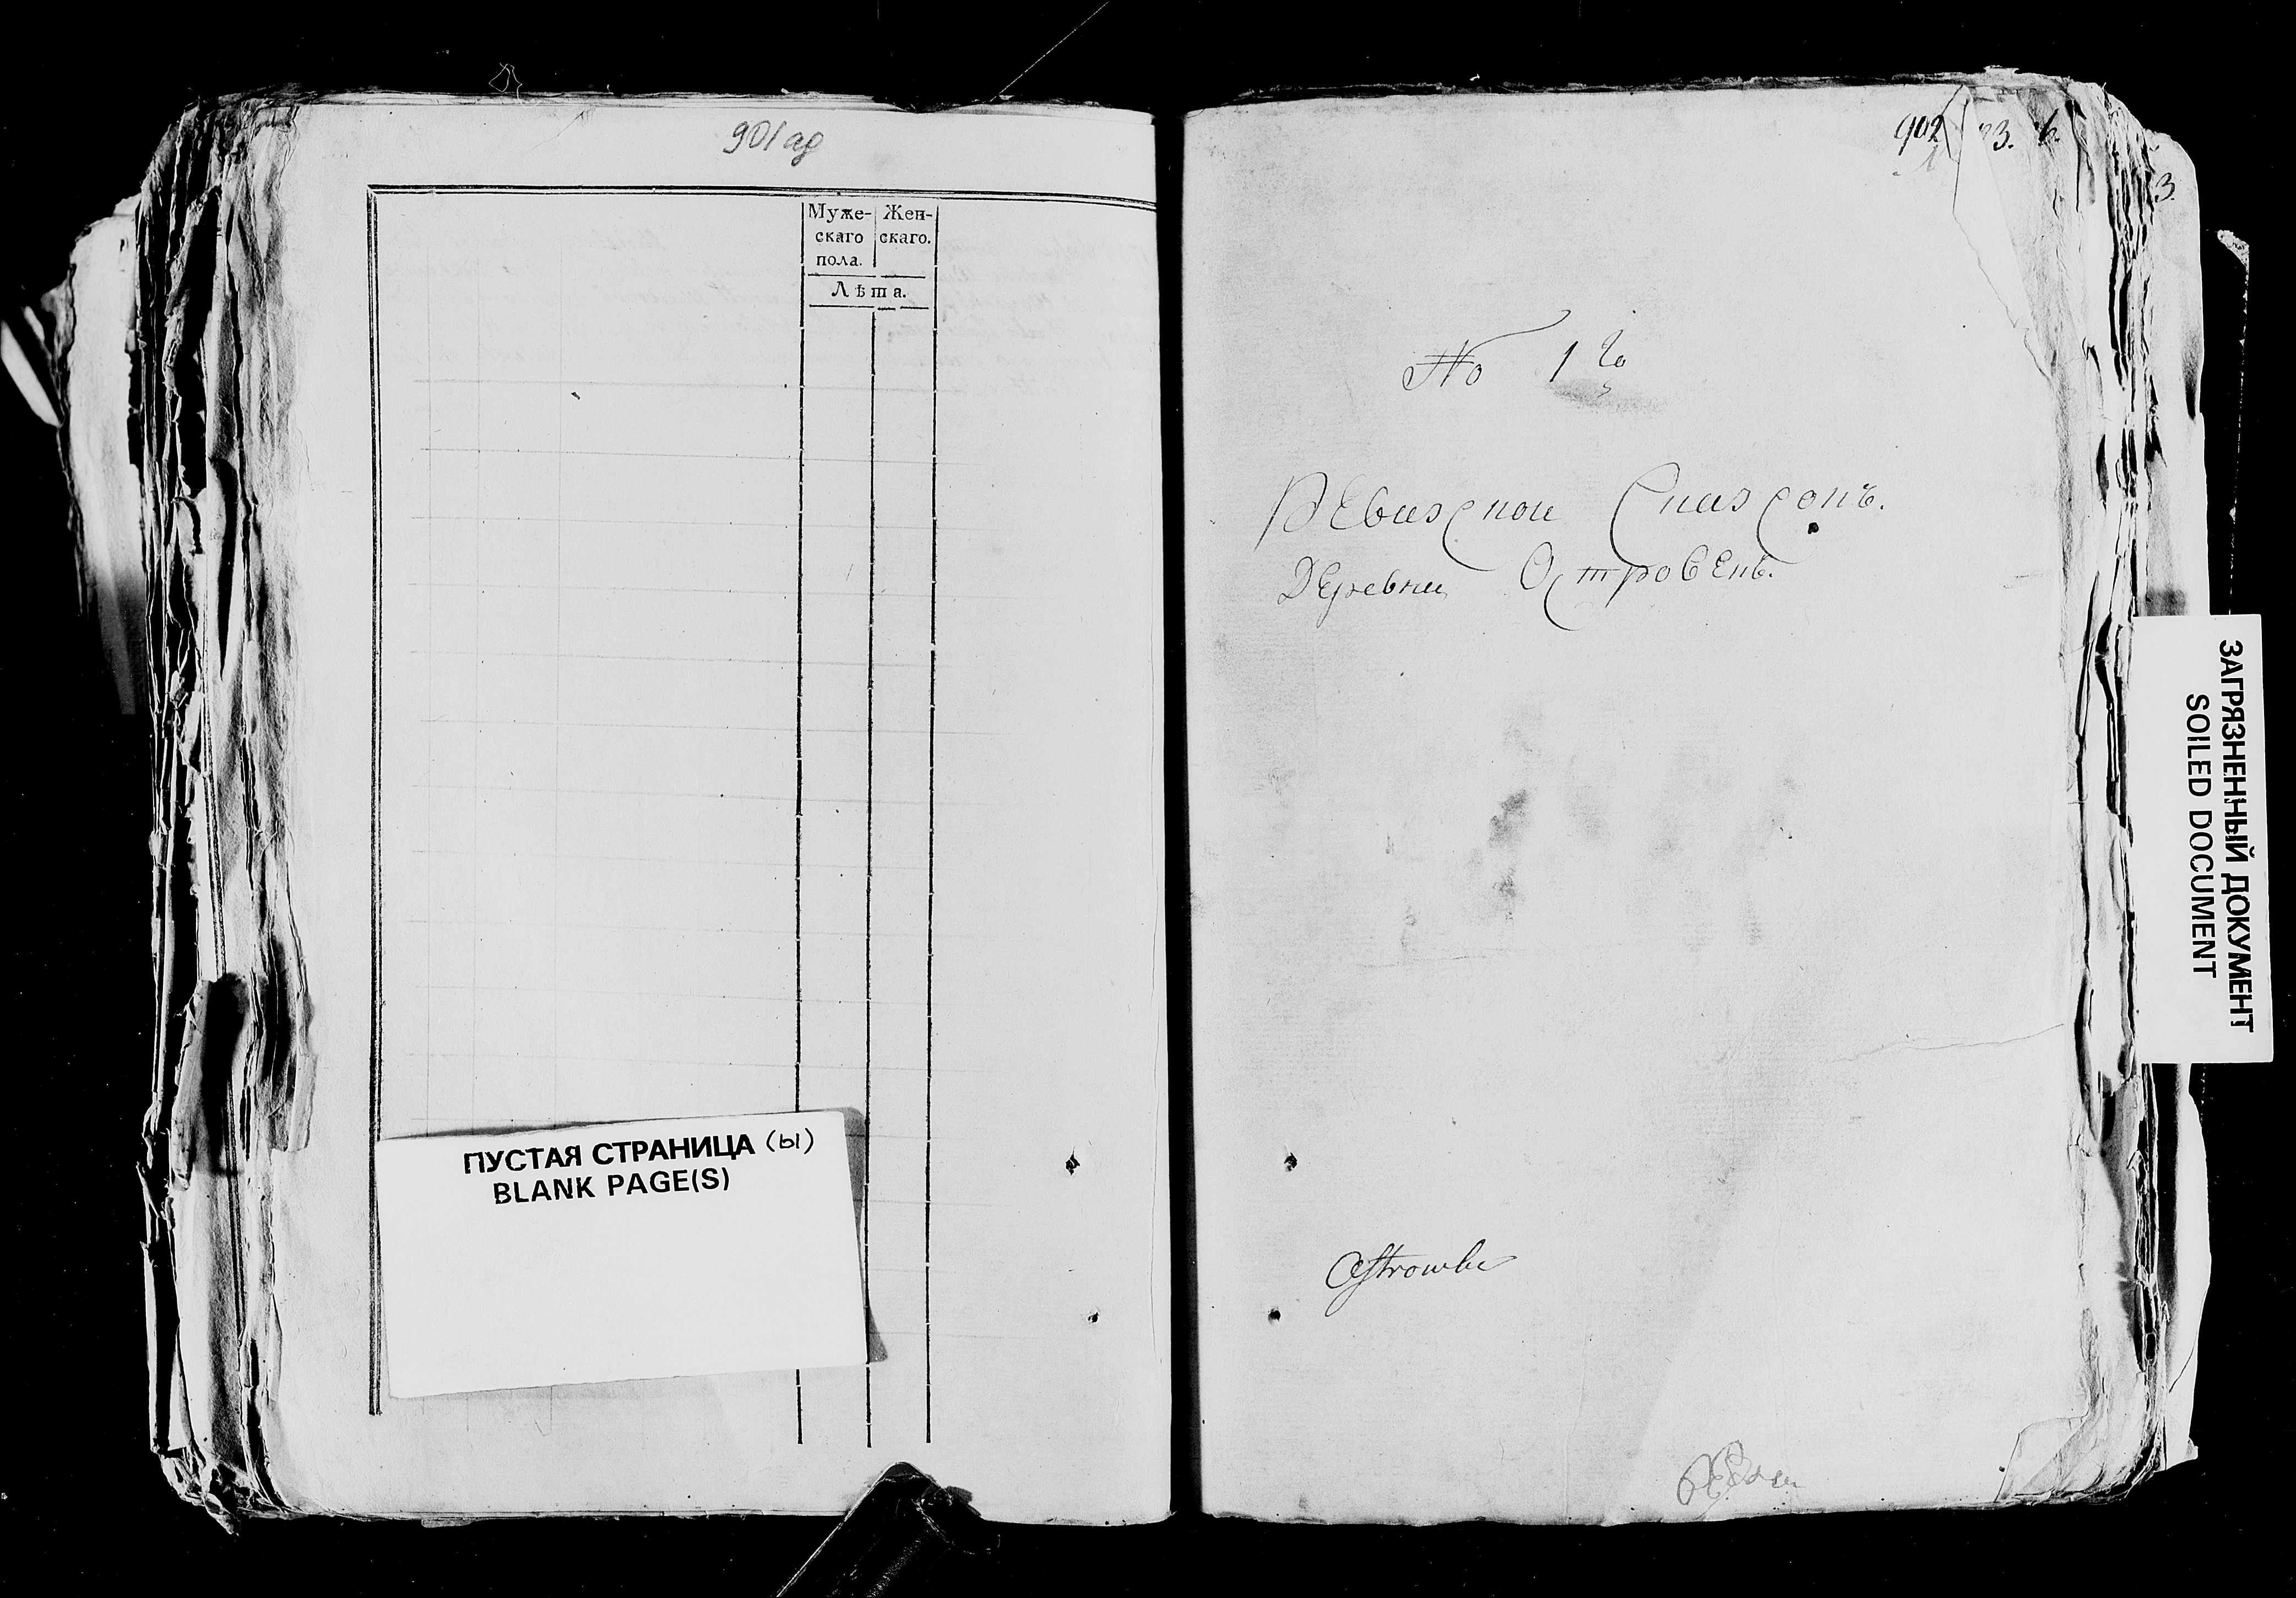 901 ад
Муже- Жен-
скаго скаго.
пола.
Лѣта.
ПУСТАЯ СТРАНИЦА (Ы)
BLANK PAGE(S)
902 23. 6.
3.
№ 1 го
Ревизскои Сказсокъ.
Деревни Островенъ.
Ostrowke
ЗАГРЯЗНЕННЫЙ ДОКУМЕНТ
SOILED DOCUMENT